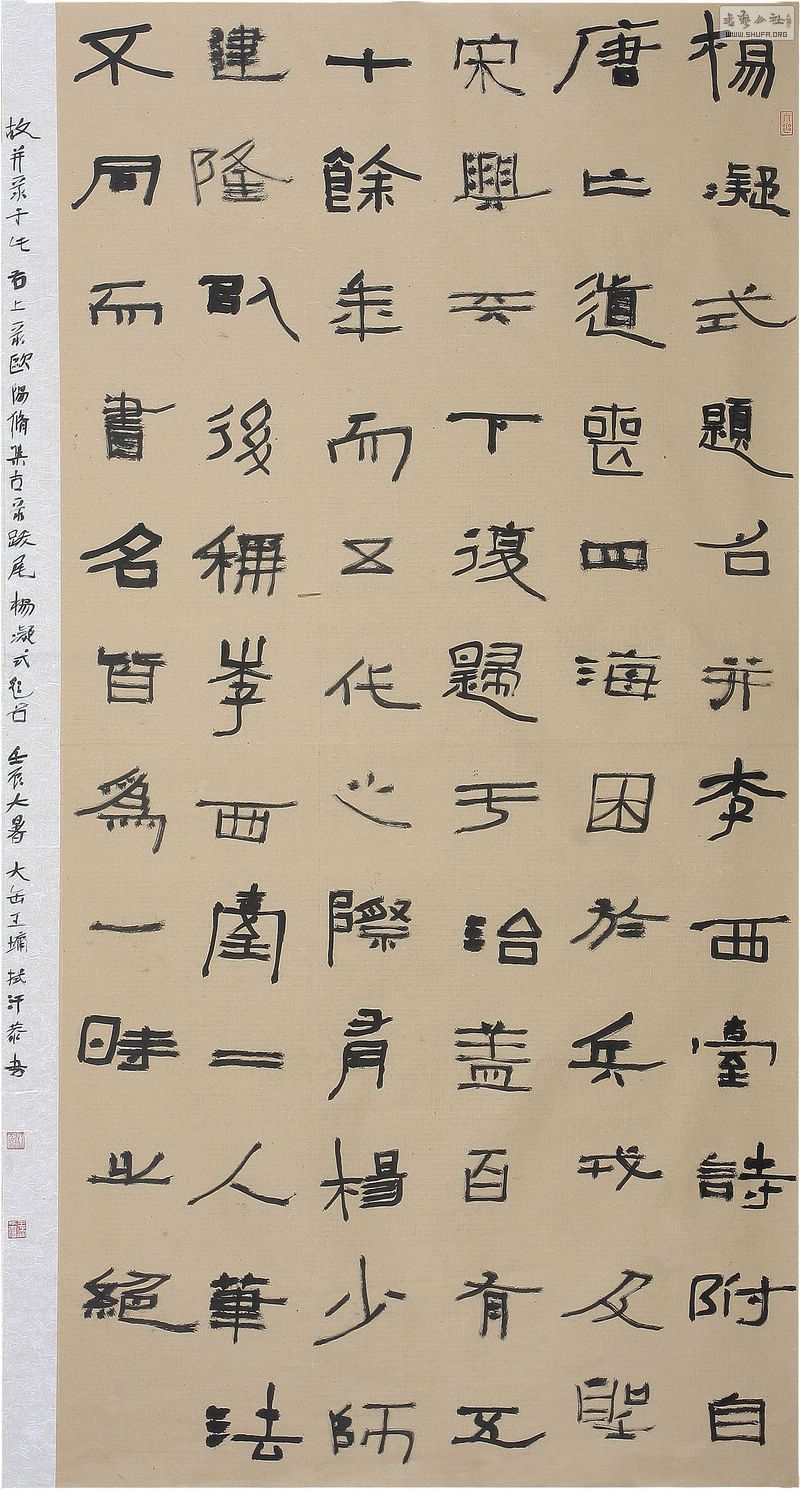 楊凝式題名并李西臺詩附自
唐亡道喪四海困於兵戎及聖
宋興天下復歸于治蓋百有五
十餘年而五代之際有楊少師
建隆以後稱李西臺二人筆法
不同而書名皆為一時之絕
故并录于此 右上录歐陽脩集古录跋尾楊凝式題名 壬辰大暑 大缶王墉拭汗恭書
書藝公社
WWW.SHUFA.ORG